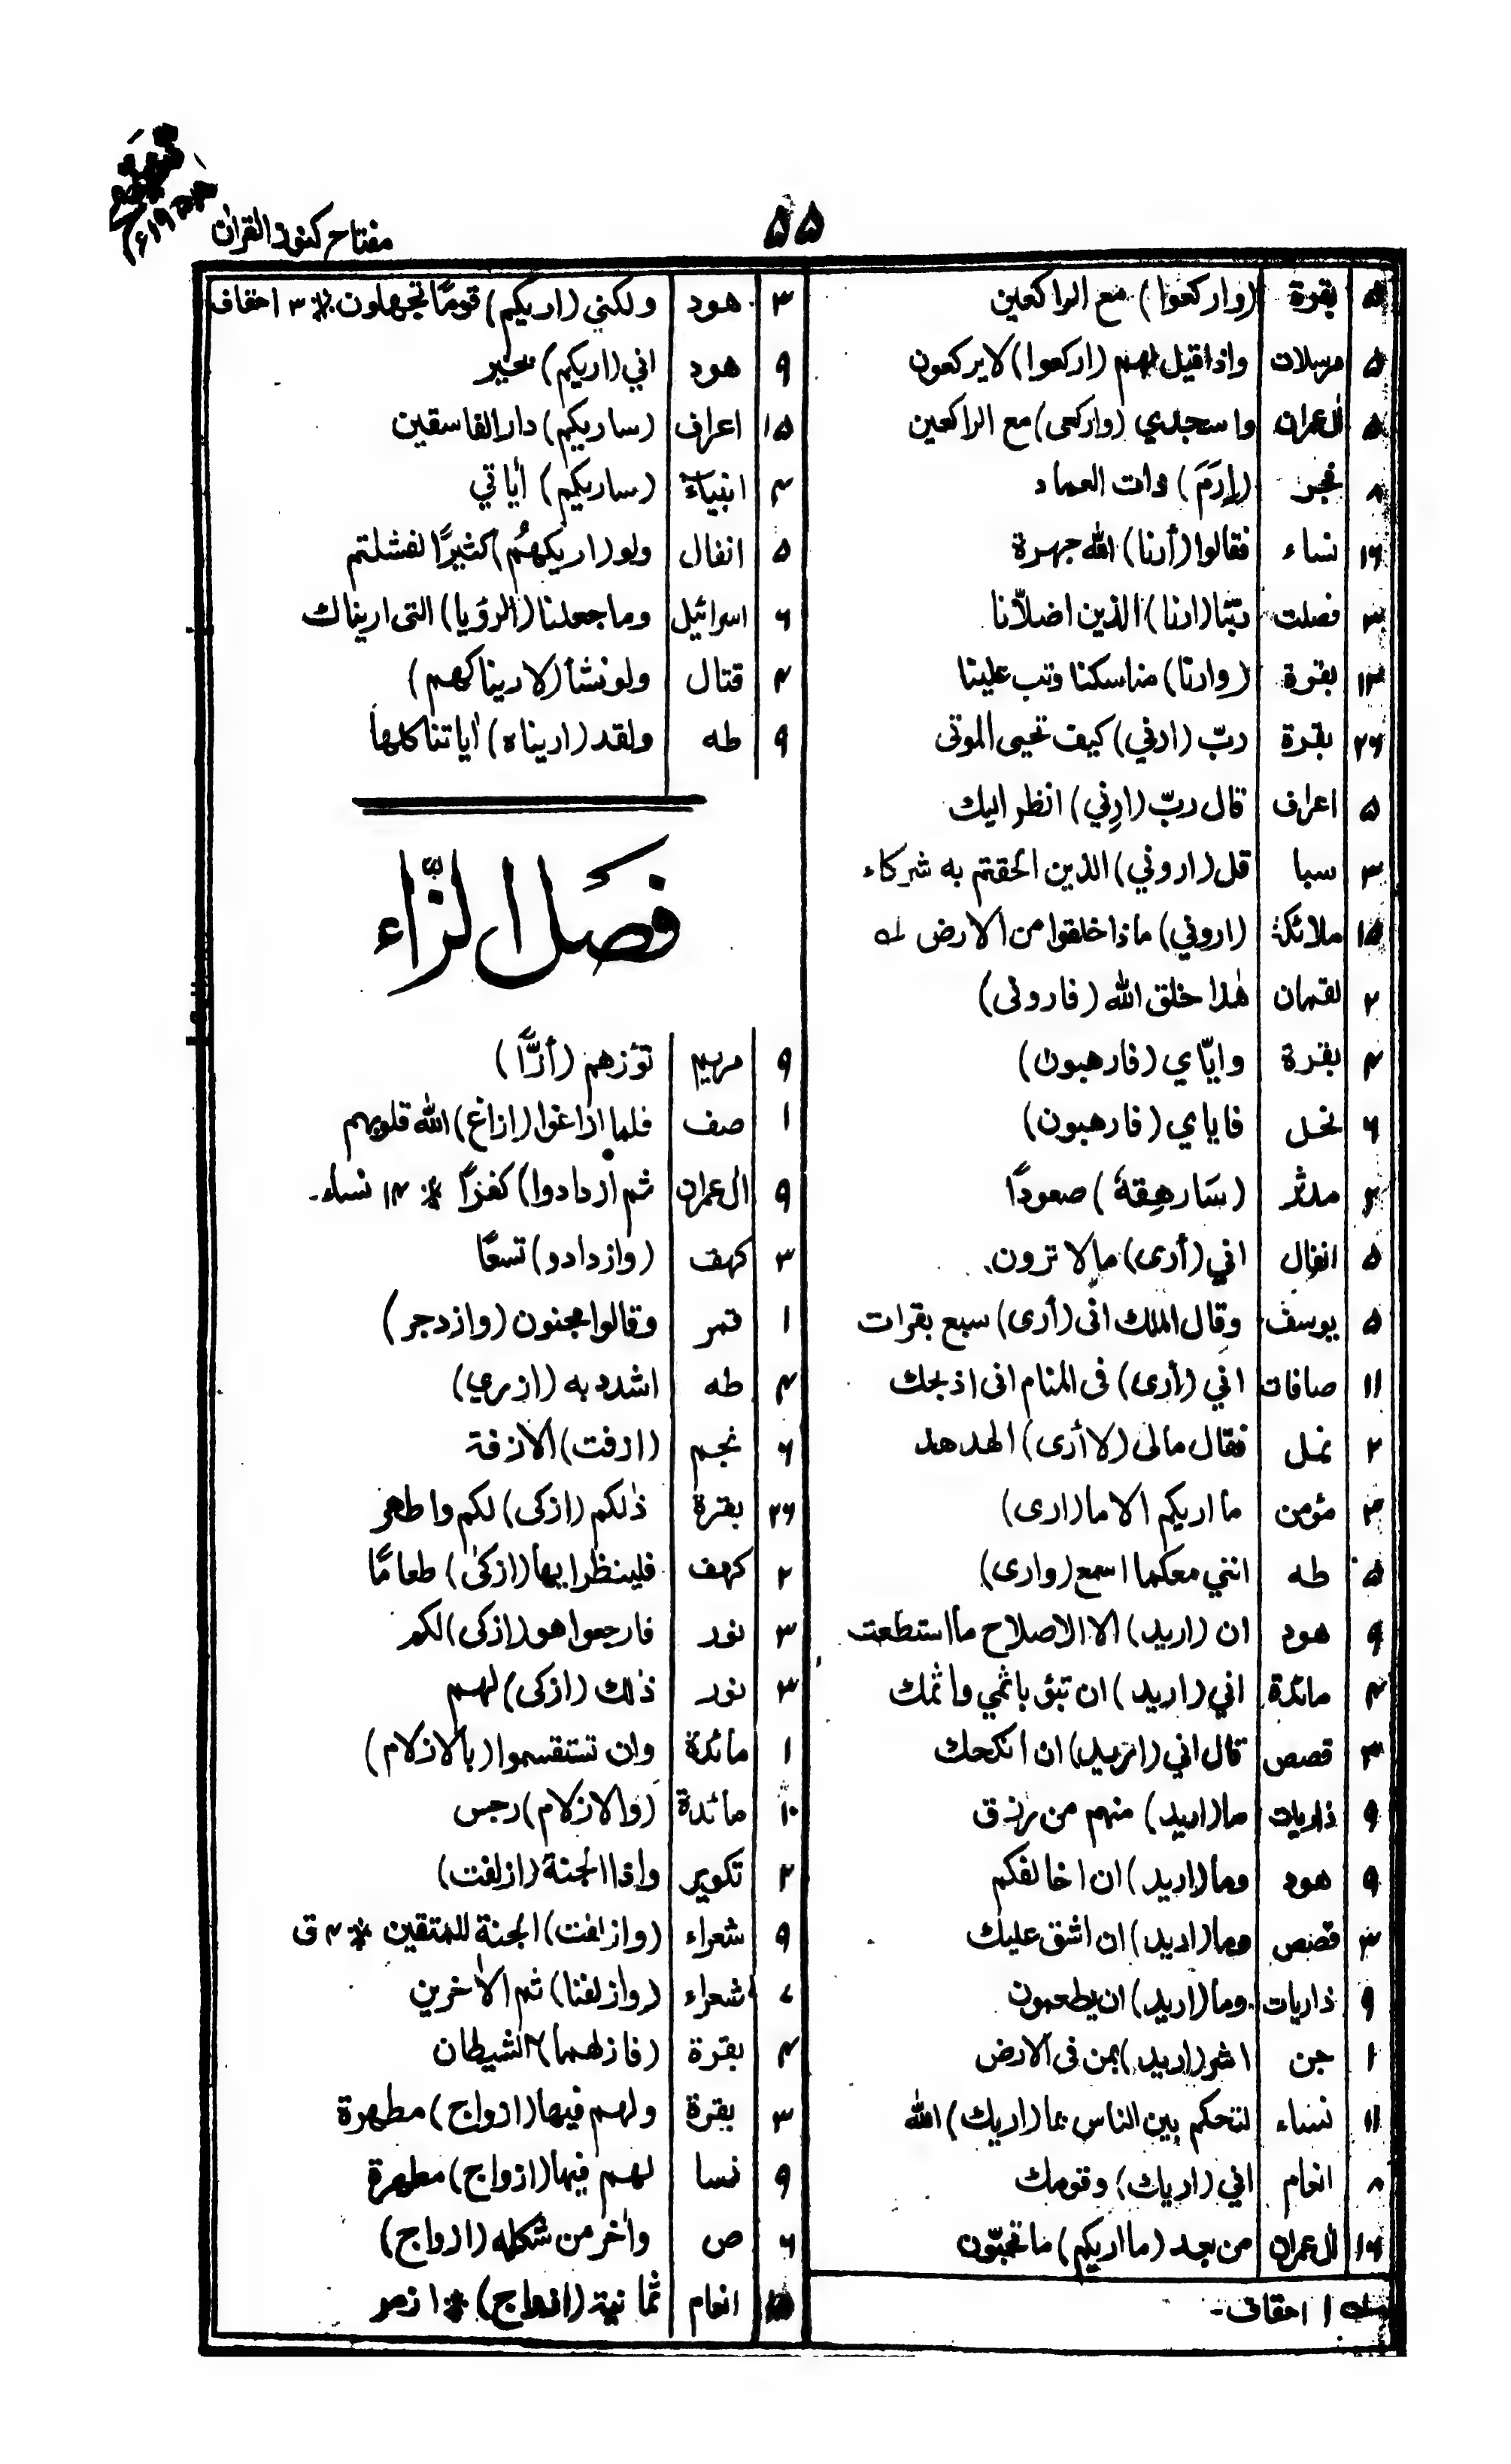 ۵۵
مفتاح كنوز القرآن
۵ بقرة (واركعوا) مع الراكعين
۵ مرسلات واذا قيل لهم (اركعوا) لا يركعون
۵ اٰل عمران واسجدي (واركعى) مع الراكعين
۸ فجر (اِرَمَ) ذات العماد
۱۶ نساء فقالوا (أرنا) الله جهرة
۳ فصلت ربّنا (ارنا) الذين اضلّانا
۱۳ بقرة (وارنا) مناسكنا وتب علينا
۲۶ بقرة ربّ (ارني) كيف تحيى الموتى
۵ اعراف قال ربّ (ارِني) انظر اليك
۳ سبا قل (اروني) الذين الحقتم به شركاء
۱۵ ملائكة (اروني) ماذا خلقوا من الارض لـه
۲ لقمان هٰذا خلق الله (فارونى)
۴ بقرة وايّاي (فارهبون)
۶ نحل فاياي (فارهبون)
۲ مدثر (سَارهِقهٗ) صعودًا
۵ انفال اني (أرى) ما لا ترون
۵ يوسف وقال الملك انى (أرى) سبع بقرات
۱۱ صافات اني (أرى) فى المنام انى اذبحك
۲ نمل فقال مالى (لا أرى) الهدهد
۳ مؤمن ما اريكم الا ما (ارى)
۵ طه انني معكما اسمع (وارى)
۹ هود ان (اريد) الا الاصلاح ما استطعت
۴ مائدة اني (اريد) ان تبؤ باثمي واثمك
۳ قصص قال اني (اريد) ان انكحك
۹ ذاريات ما (اريد) منهم من رزق
۹ هود وما (اريد) ان اخالفكم
۳ قصص وما (اريد) ان اشق عليك
۹ ذاريات وما (اريد) ان يطعمون
۱ جن اشر (اريد) بمن فى الارض
۱۱ نساء لتحكم بين الناس بما (اريك) الله
۸ انعام اني (اريك) وقومك
۱۶ اٰل عمران من بعد (ما اريكم) ما تحبّون
لـه ۱ احقاف-
۳ هود ولكني (اريكم) قومًا تجهلون * ۳ احقاف
۹ هود اني (اريكم) بخير
۱۵ اعراف (ساريكم) دار الفاسقين
۴ انبياء (ساريكم) اٰياتي
۵ انفال ولو (اريكهُم) كثيرًا لفشلتم
۶ اسرائيل وما جعلنا (الرؤيا) التى اريناك
۴ قتال ولو نشأ (لاريناكهم)
۹ طه ولقد (اريناه) اٰياتنا كلها
فصل الزّاء
۹ مريم تؤزهم (أزًّا)
۱ صف فلما زاغوا (ازاغ) الله قلوبهم
۹ اٰل عمران ثم ازدادوا) كفرًا * ۱۴ نساء-
۳ كهف (وازدادو) تسعًا
۱ قمر وقالوا مجنون (وازدجر)
۴ طه اشدد به (ازري)
۶ نجم (ازفت) الازفة
۲۶ بقرة ذٰلكم (ازكى) لكم واطهر
۲ كهف فلينظر ايها (ازكىٰ) طعامًا
۳ نور فارجعوا هو (ازكى) لكم
۳ نور ذٰلك (ازكى) لهم
۱ مائدة وان تستقسموا (بالازلام)
۱۰ مائدة (والازلام) رجس
۲ تكوير واذا الجنة (ازلفت)
۹ شعراء (وازلفت) الجنة للمتقين * ۴ ق
۷ شعراء (وازلفنا) ثم الاٰخرين
۴ بقرة (فازلهما) الشيطان
۳ بقرة ولهم فيها (ازواج) مطهرة
۹ نسا لهم فيها (ازواج) مطهرة
۶ ص واٰخر من شكله (ازواج)
انعام ثمانية (ازواج) * ۱ زمر